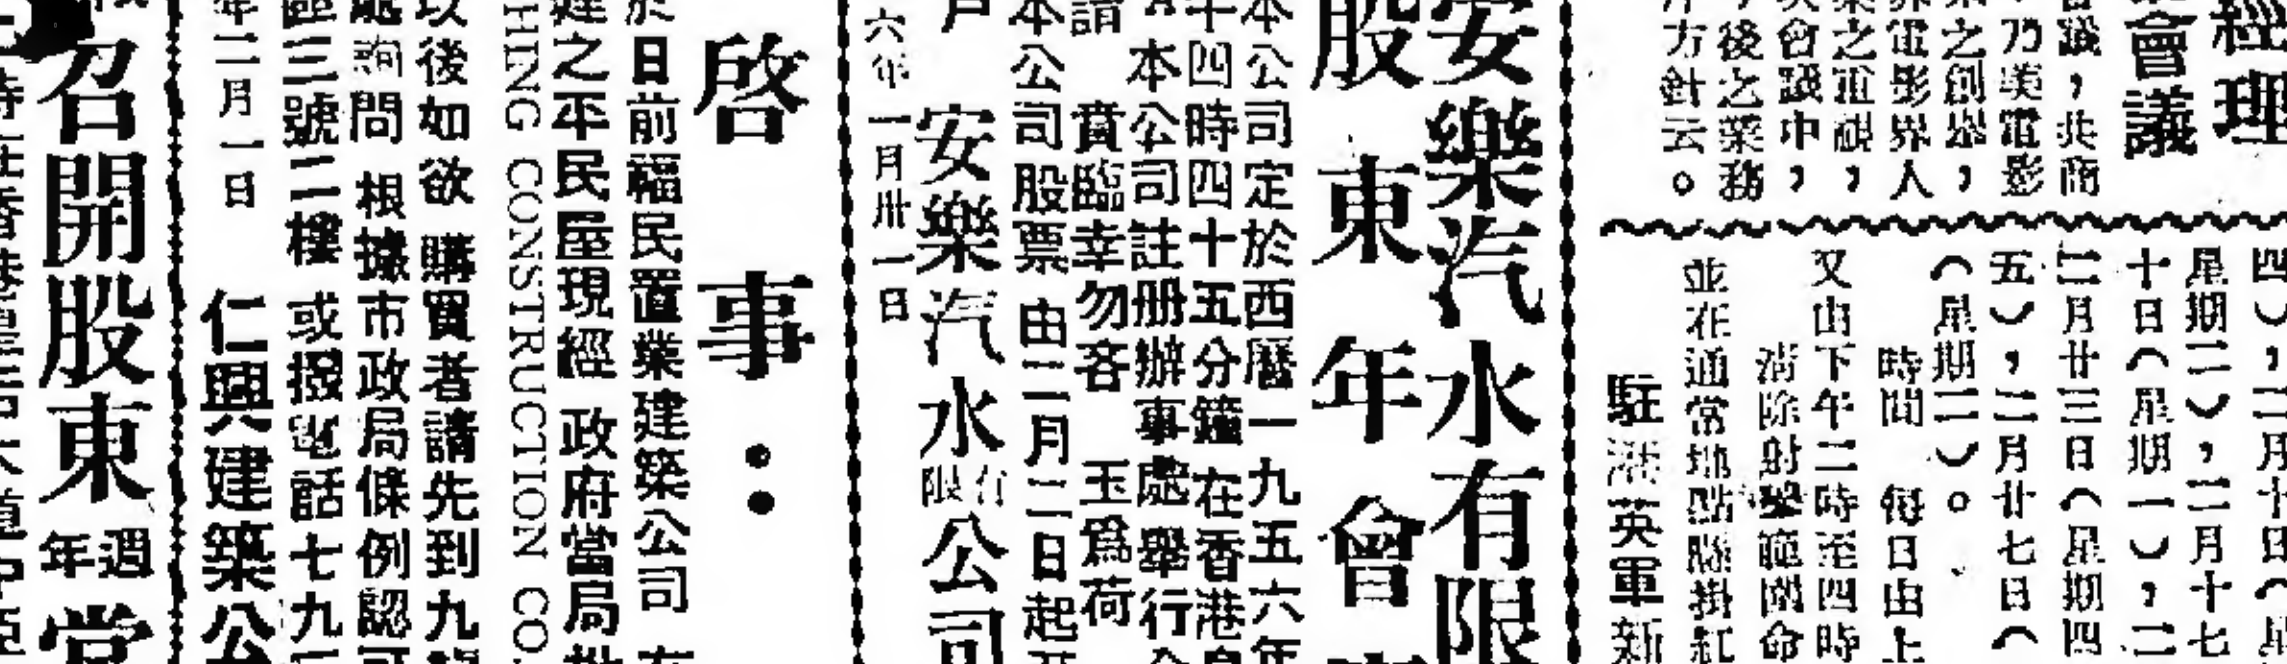 經理
會議
會議，共商
乃美電影
之創舉，
界電影界人
之電視，
次會議中，
今後之業務
方針云。
四），二月十日（星
星期二），二月十七
十日（星期一），二
二月廿三日（星期四
五），二月廿七日（
（星期二）。
時間 每日由上
又由下午二時至四時
清除射擊範圍命
並在通常地點懸掛紅
駐港英軍新
安樂汽水有限
股東年會
本公司定於西曆一九五六年
十四時四十五分鐘在香港
本公司註册辦事處舉行
請 賁臨幸勿吝 玉爲荷
本公司股票由二月二日起
戶
安樂汽水有限公司
六年一月卅一日
啓事：
於日前福民置業建築公司
建之平民屋現經 政府當局批
HING CONSTRUCTION CO.
以後如欲購買者請先到九龍
處詢問 根據市政局條例認可
區三號二樓 或撥電話七九
年二月一日
仁興建築公
召開股東週年常